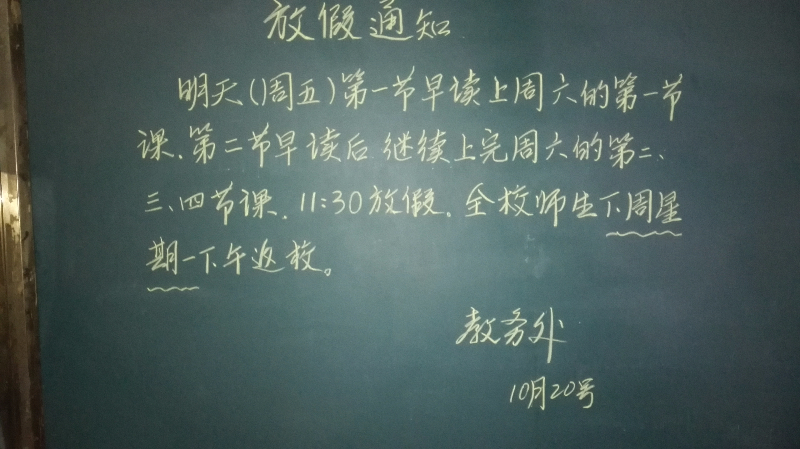 放假通知
明天(周五)第一节早读上周六的第一节
课、第二节早读后继续上完周六的第二、
三、四节课、11:30放假。全校师生下周星
期一下午返校。
教务处
10月20号